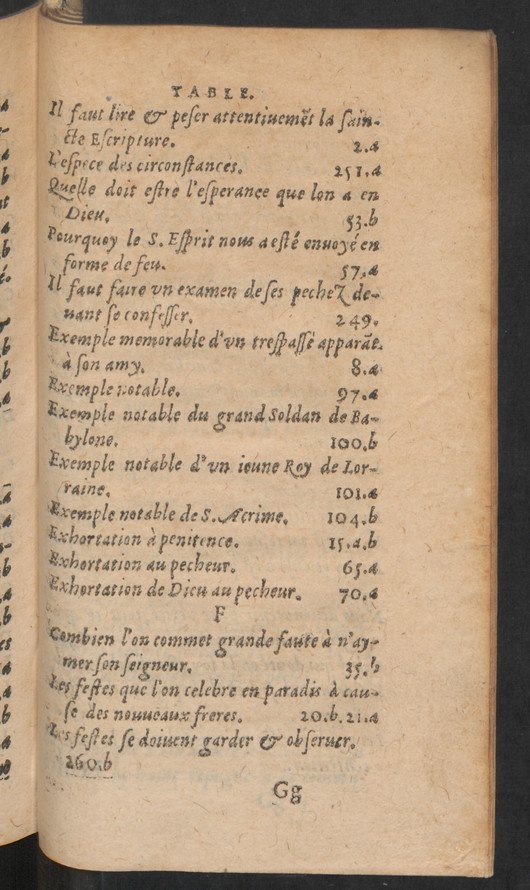 TABLE.
Il faut lire & peſer attentiuemẽt la ſain-
cte Eſcripture. 2.a
L'eſpece des circonſtances. 251.a
Quelle doit eſtre l'eſperance que lon a en
Dieu. 53.b
Pourquoy le S. Eſprit nous a eſté enuoyé en
forme de feu. 57.a
Il faut faire vn examen de ſes pechez de-
uant ſe confeſſer. 249.
Exemple memorable d'vn treſpaſſé apparãt
à ſon amy. 8.a
Exemple notable. 97.a
Exemple notable du grand Soldan de Ba-
bylone. 100.b
Exemple notable d'vn ieune Roy de Lor-
raine. 101.a
Exemple notable de S. Acrime. 104.b
Exhortation à penitence. 15.a.b
Exhortation au pecheur. 65.a
Exhortation de Dieu au pecheur. 70.a
F
Combien l'on commet grande faute à n'ay-
mer ſon ſeigneur. 35.b
Les feſtes que l'on celebre en paradis à cau-
ſe des nouueaux freres. 20.b.21.a
Les feſtes ſe doiuent garder & obſeruer.
260.b
Gg